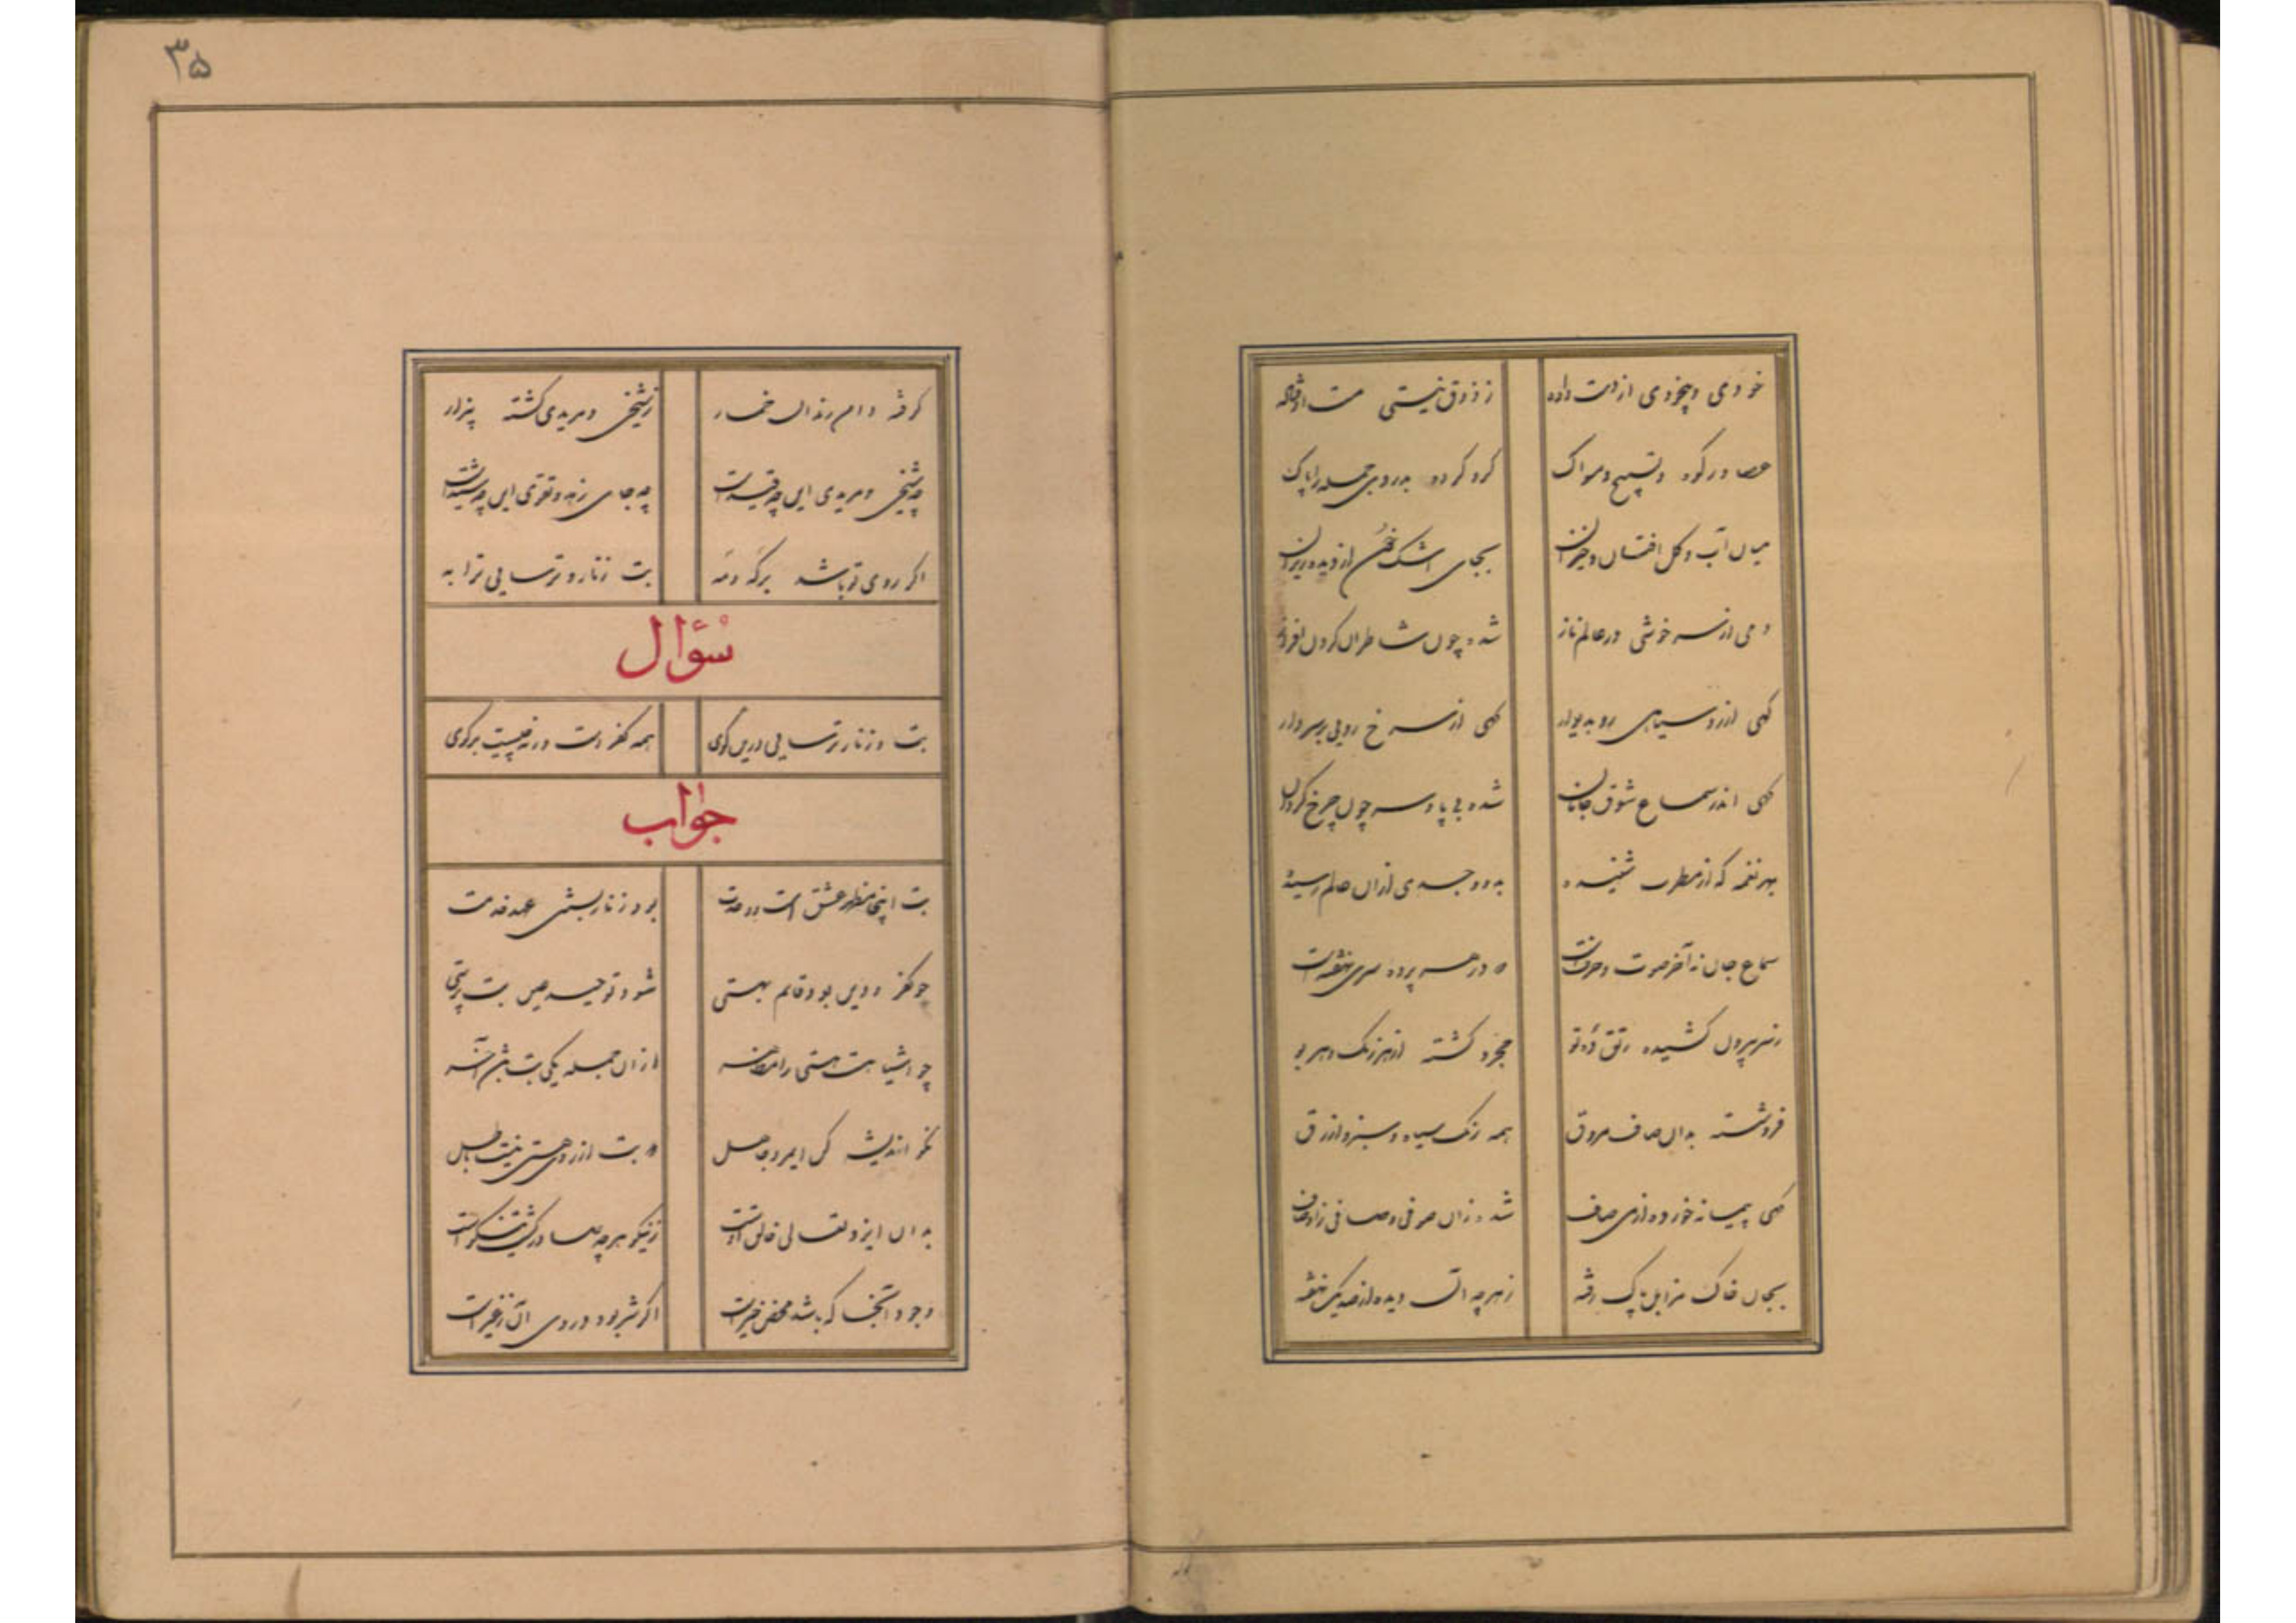 خودی و بیخودی از دست داده ز ذوق نیستی مست اوفتاده
عصا و رکوه و تسبیح و مسواک کرو کرده بدردی جمله را پاک
میان آب و کل افتان و خیزان بجای اشک خون از دیده ریزان
دمی از سرخوشی در عالم ناز شده چون شاطران کردن افراز
کهی از رو سیاهی رو بدیوار کهی از سرخ رویی بر سر دار
کهی اندر سماع شوق جانان شده بی پا و سر چون چرخ کردان
بهر نغمه که از مطرب شنیده بدو وجدی از آن عالم رسیده
سماع جان نه آخر صوت و حرفست که در هر پرده سری نهفته است
ز سر بیرون کشیده دلق ده تو مجرد کشته از هر رنک و هر بو
فروشسته بدان صاف مروق همه رنک سیاه و سبز و ازرق
کهی پیمانه خورده از می صاف شده زان صوفی و صافی ز اوصاف
بجان خاک مزابل پاک رفته ز هر چه آن دیده از صد یک نهفته
۳۵
کرفته دامن رندان خمار ز شیخی و مریدی کشته بیزار
چه شیخی و مریدی این چه قیدست چه جای زهد و تقوی این چه شیدست
اکر روی تو باشد بر که و مه بت و زنار و ترسایی ترا به
سؤال
بت و زنار و ترسایی درین کوی همه کفر است ورنه چیست برکوی
جواب
بت اینجا مظهر عشق است و وحدت بود زنار بستن عقد خدمت
چو کفر و دین بود قائم بهستی شود توحید عین بت پرستی
چو اشیا هست هستی را مظاهر از آن جمله یکی بت باشد آخر
نکو اندیشه کن ای مرد عاقل که بت از روی هستی نیست باطل
بدان ایزد تعالی خالق اوست ز نیکو هر چه صادر کشت نیکوست
وجود آنجا که باشد محض خیرست اکر شر بود در وی آن ز غیرست